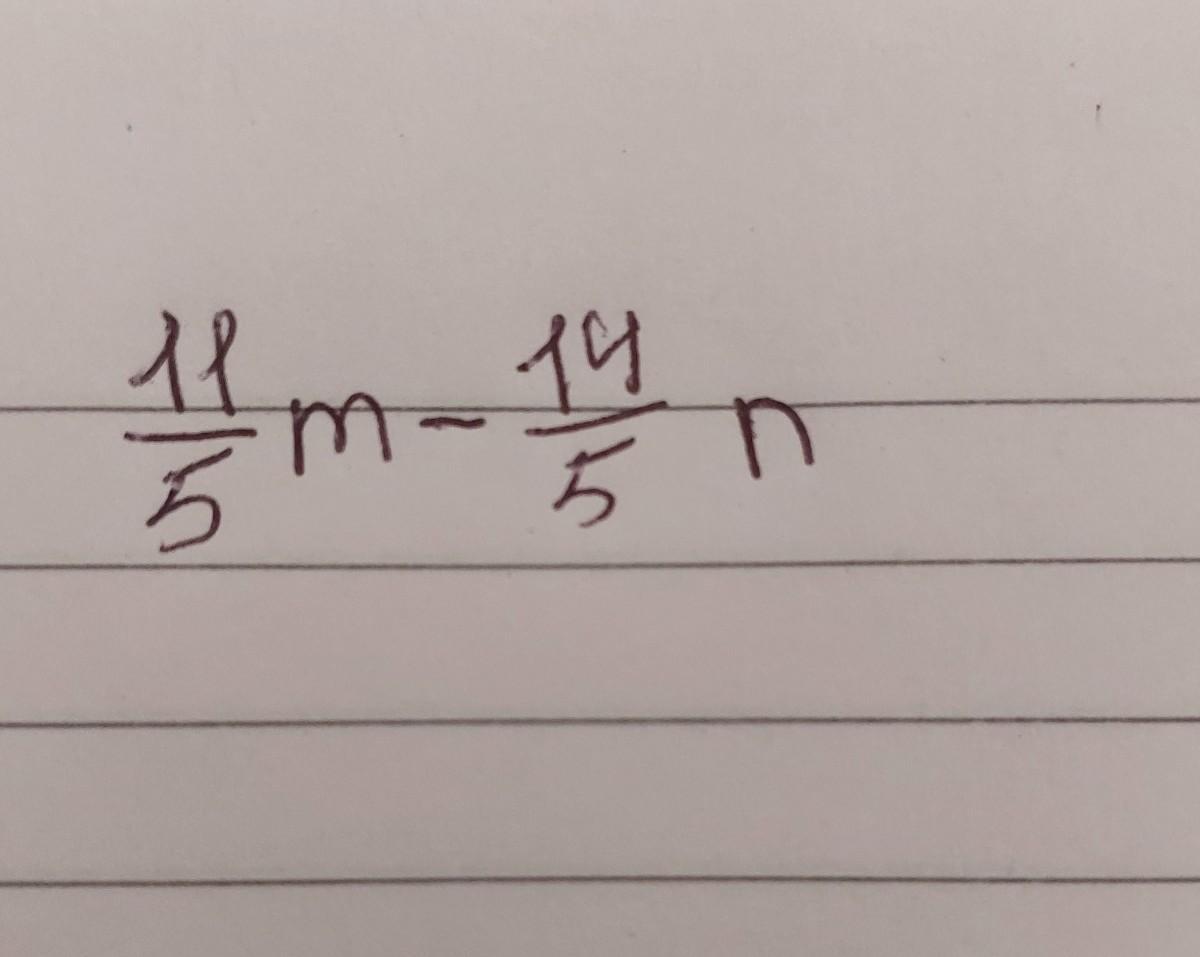 11/5 m - 14/5 n